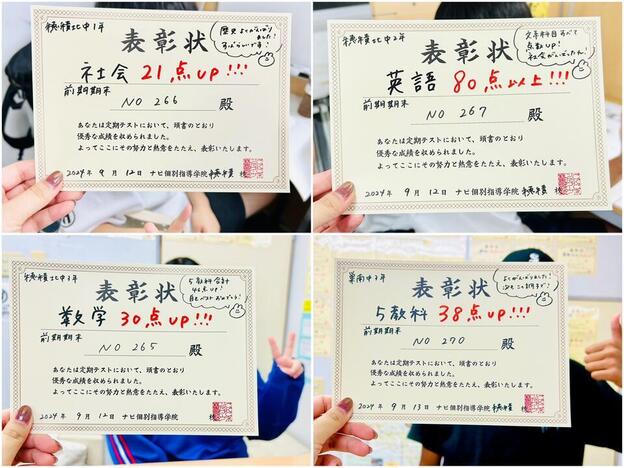 穂積北中1年
表彰状
歴史よくがんばり
ました!
すばらしいです!
社会 21点up!!!
前期期末
NO 266 殿
あなたは定期テストにおいて、頭書のとおり
優秀な成績を収められました。
よってここにその努力と熱意をたたえ、表彰いたします。
2024年 9月 12日 ナビ個別指導学院 穂積 校
穂積北中2年
表彰状
文系科目すべて
点数UP!
社会がんばったね!
英語 80点以上!!!
前期期末
NO 267 殿
あなたは定期テストにおいて、頭書のとおり
優秀な成績を収められました。
よってここにその努力と熱意をたたえ、表彰いたします。
2024年 9月 12日 ナビ個別指導学院 穂積 校
穂積北中3年
表彰状
5教科合計
46点UP!
自己ベストおめでとう!
数学 30点up!!!
前期期末
NO 265 殿
あなたは定期テストにおいて、頭書のとおり
優秀な成績を収められました。
よってここにその努力と熱意をたたえ、表彰いたします。
2024年 9月 12日 ナビ個別指導学院 穂積 校
巣南中3年
表彰状
よくがんばりました!
5教科 38点up!!!
前期期末
NO 270 殿
あなたは定期テストにおいて、頭書のとおり
優秀な成績を収められました。
よってここにその努力と熱意をたたえ、表彰いたします。
2024年 9月 13日 ナビ個別指導学院 穂積 校